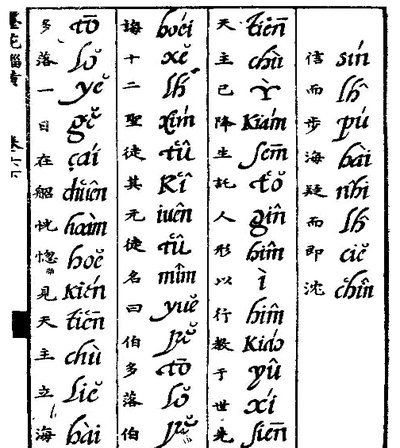 信而步海疑而即沈
sín lh̑ pú hài nhî lh̑ ciĕ chîn
天主已降生託人形以行教于世先
tiēn chù ỳ kiám sēm tŏ gîn hîm ì hîm kiáo yû xí siēn
誨十二聖徒其元徒名曰伯多落伯
hoéi xĕ lh́ xím tû kî iuên tû mîm yuĕ pĕ tō lŏ pĕ
多落一日在船恍惚見天主立海
tō lŏ yĕ gĕ çái chuên hoàm hoĕ kién tiēn chù liĕ hài
墨苑緇黃 卷六下